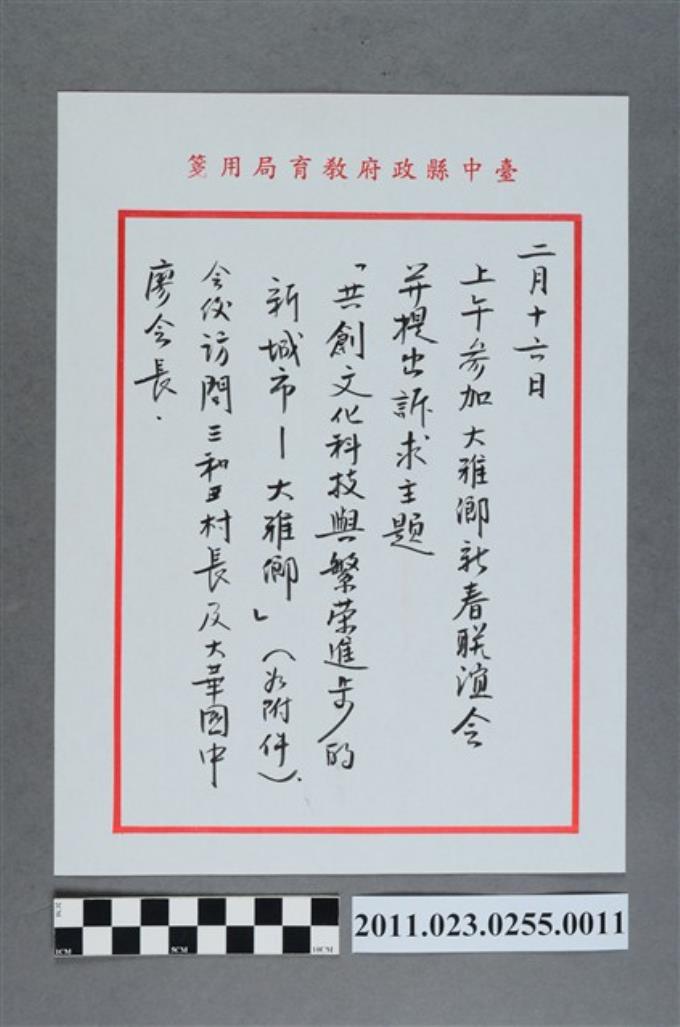 臺中縣政府教育局用箋
二月十六日
上午參加大雅鄉新春联誼会
并提出訴求主題
「共創文化科技與繁荣進步的
新城市—大雅鄉」（如附件）.
会後訪問三和王村長及大華國中
廖会長.
2CM
1CM
5CM
10CM
2011.023.0255.0011